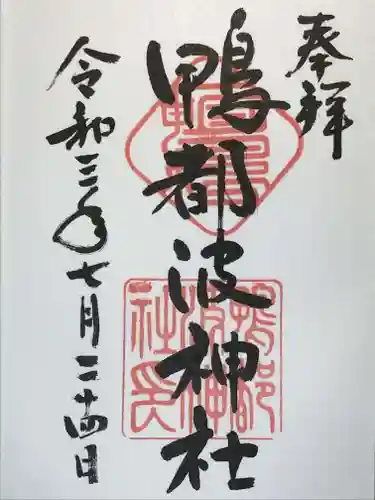 奉拝
鴨都波神社
鴨都波神社印
令和三年七月二十四日